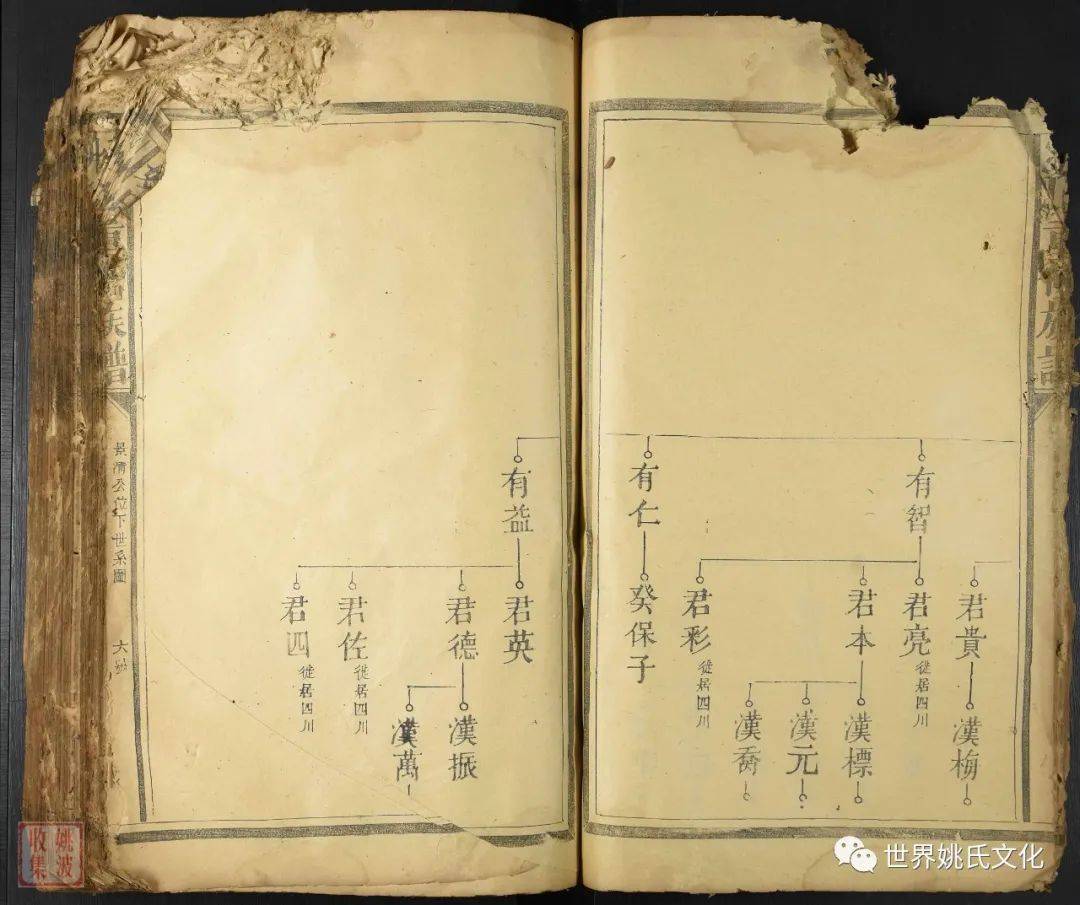 有智
有仁
君貴
君亮
徙居四川
君本
君彩
徙居四川
癸保子
漢梅
漢標
漢元
漢喬
有益
君英
君德
君佐
徙居四川
君四
徙居四川
漢振
漢萬
族譜
景清公位下世系圖
六
姚波
收集
世界姚氏文化